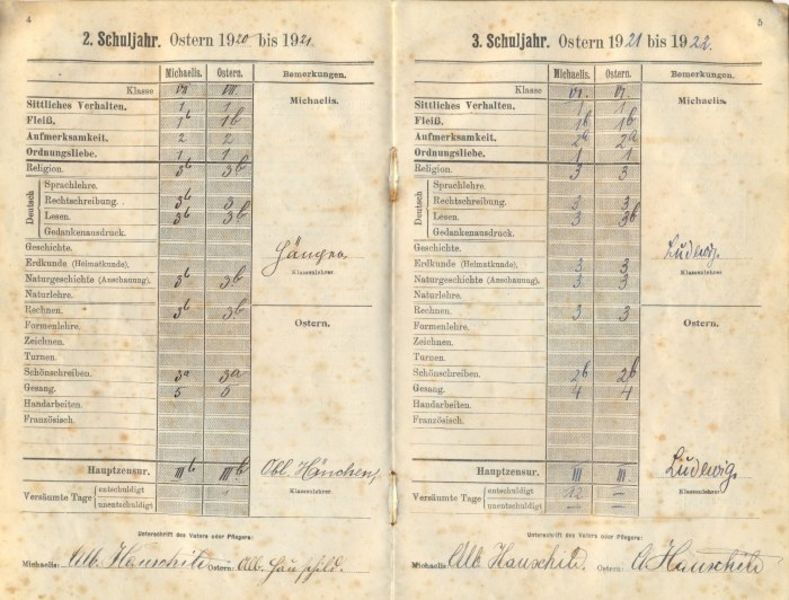 4
2. Schuljahr. Ostern 1920 bis 1921.
Michaelis. Ostern. Bemerkungen.
Klasse VII VII. Michaelis.
Sittliches Verhalten. 1 1
Fleiß. 1b 1b
Aufmerksamkeit. 2 2
Ordnungsliebe. 1 1
Religion. 3b 3b
Deutsch
Sprachlehre.
Rechtschreibung. 3b 3
Lesen. 3b 3b
Gedankenausdruck.
Geschichte.
Erdkunde (Heimatkunde).
Klassenlehrer.
Naturgeschichte (Anschauung). 3b 3b
Naturlehre.
Rechnen. 3b 3b
Ostern.
Formenlehre.
Zeichnen.
Turnen.
Schönschreiben. 3a 3a
Gesang. 5 5
Handarbeiten.
Französisch.
Hauptzensur. IIIb IIIb
Klassenlehrer.
Versäumte Tage
entschuldigt
unentschuldigt
Unterschrift des Vaters oder Pflegers:
Michaelis: Alb. Hauschild Ostern: Alb. Hauschild.
5
3. Schuljahr. Ostern 1921 bis 1922.
Michaelis. Ostern. Bemerkungen.
Klasse VI. VI. Michaelis.
Sittliches Verhalten. 1 1
Fleiß. 1b 1b
Aufmerksamkeit. 2a 2a
Ordnungsliebe. 1 1
Religion. 3 3
Deutsch
Sprachlehre.
Rechtschreibung. 3 3
Lesen. 3 3b
Gedankenausdruck.
Geschichte. Ludwig.
Erdkunde (Heimatkunde). 3 3
Klassenlehrer.
Naturgeschichte (Anschauung). 3 3
Naturlehre.
Rechnen. 3 3
Ostern.
Formenlehre.
Zeichnen.
Turnen.
Schönschreiben. 2b 2b
Gesang. 4 4
Handarbeiten.
Französisch.
Hauptzensur. III III. Ludwig.
Klassenlehrer.
Versäumte Tage
entschuldigt 12 —
unentschuldigt — —
Unterschrift des Vaters oder Pflegers:
Michaelis: Alb Hauschild. Ostern: A Hauschild